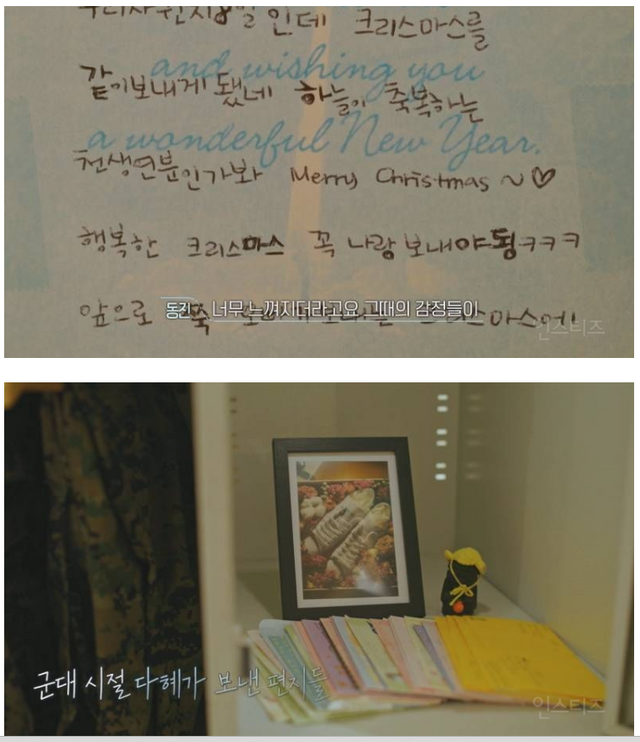 인데 크리스마스를
and wishing you
같이보내게 됐네 하늘이 축복하는
a wonderful New Year.
천생연분인가봐 Merry Christmas ~♡
행복한 크리스마스 꼭 나랑 보내야됭ㅋㅋㅋ
앞으로 쭉
동진 너무 느껴지더라고요 그때의 감정들이
인스티즈
군대 시절 다혜가 보낸 편지들
인스티즈